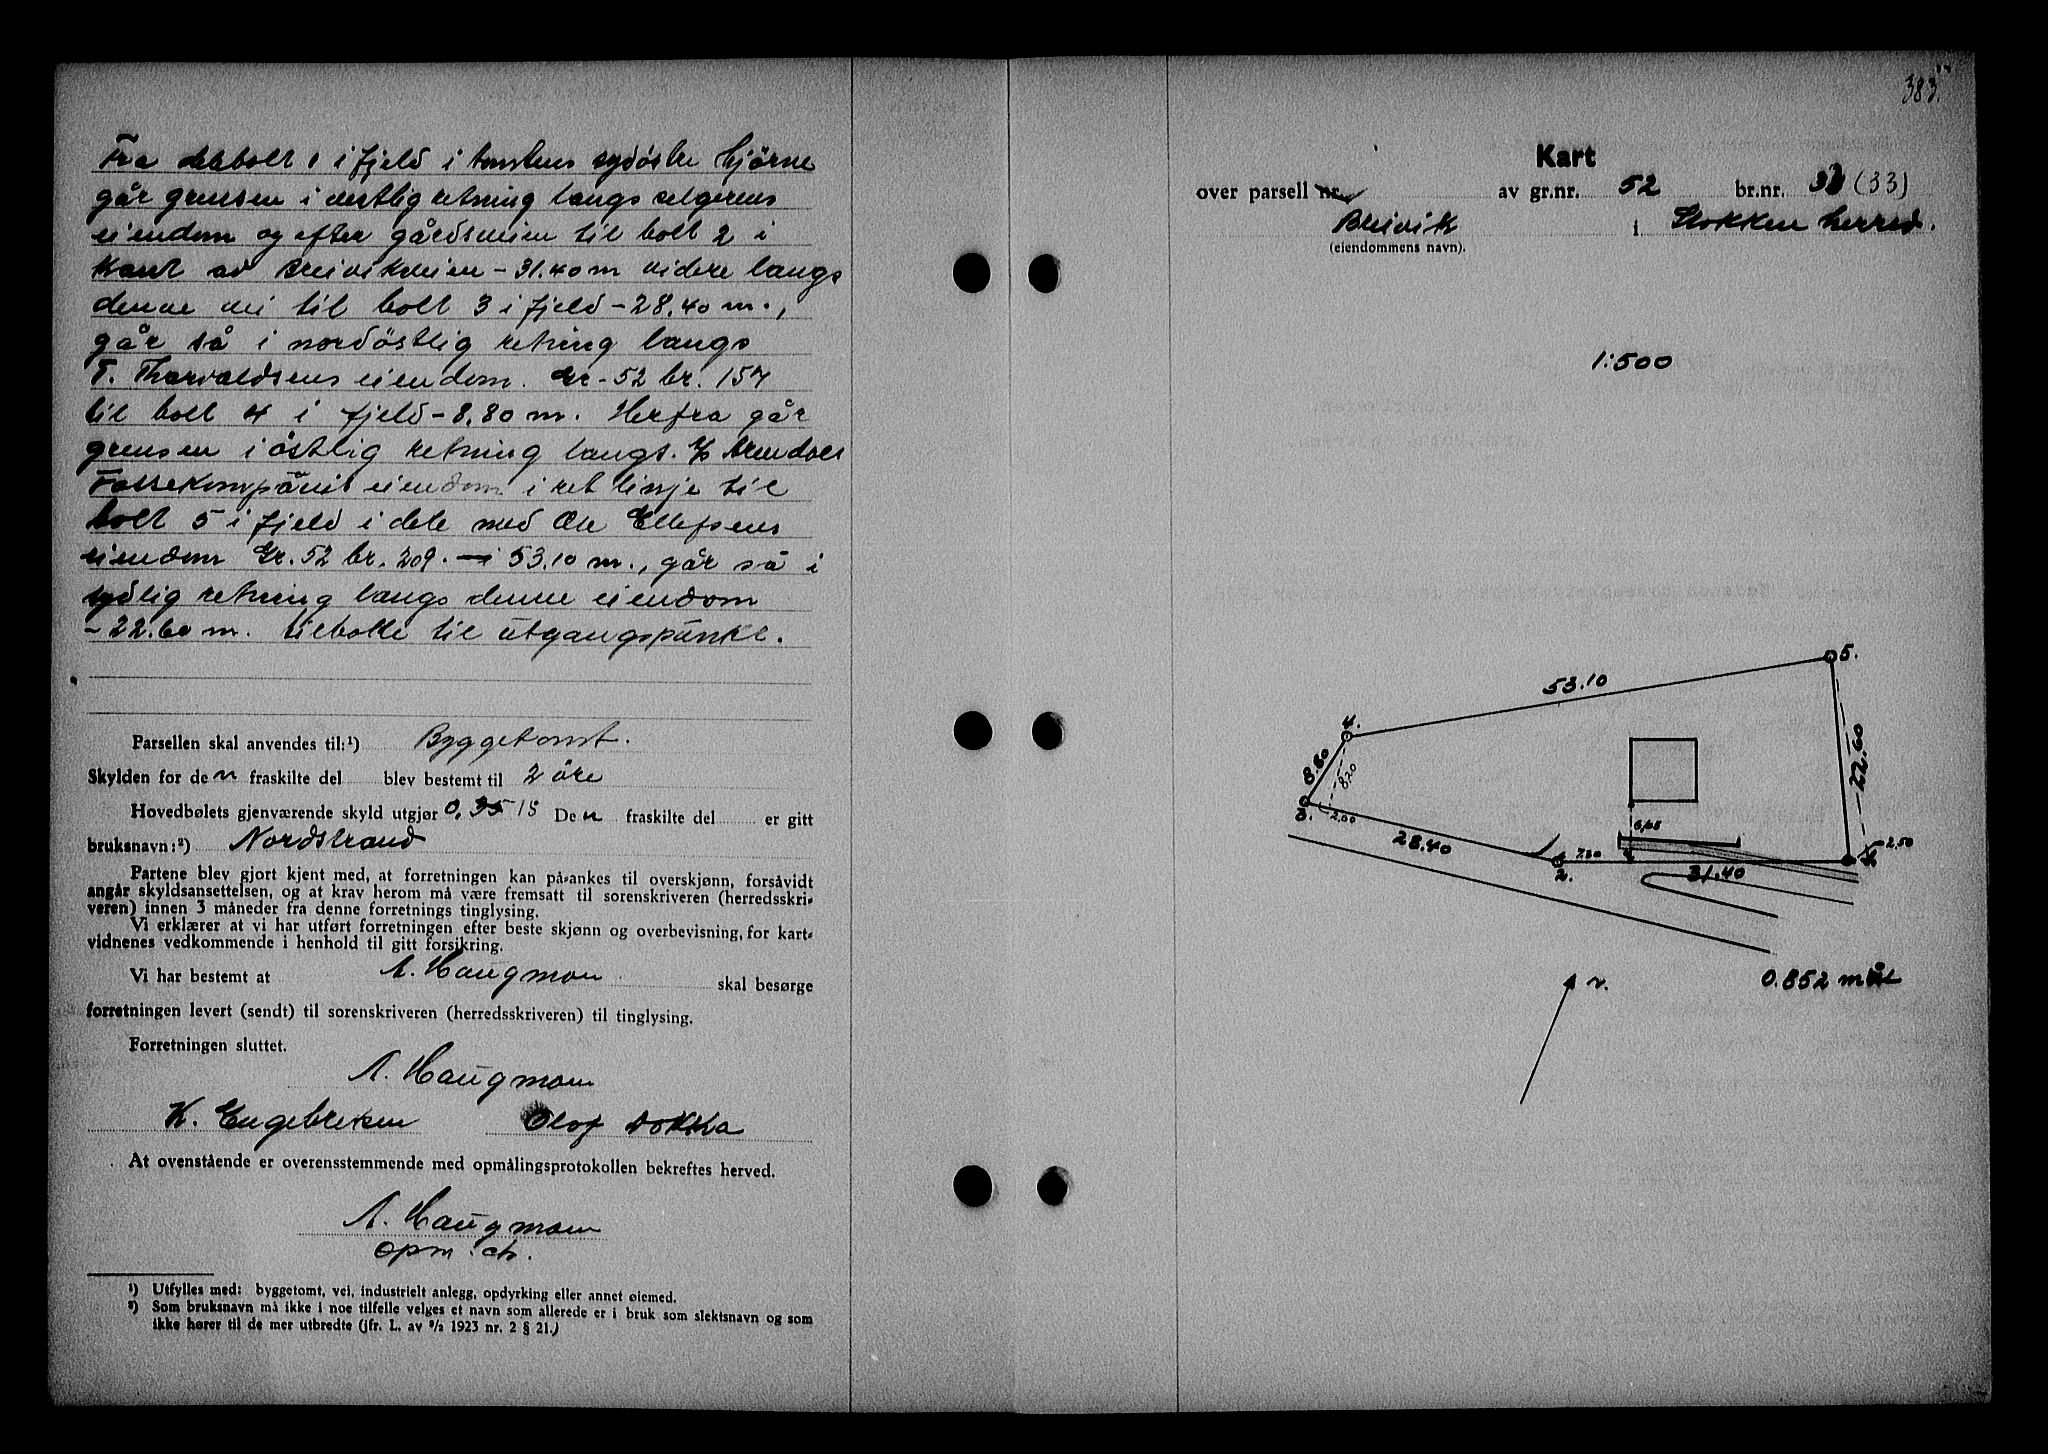 Fra delebolt 1 i fjeld i tomtens sydöstre hjörne
går grensen i vestlig retning langs selgerens
eiendom og efter gårdsveien til bolt 2 i
Kant av Breivikveien - 31.40 m videre langs
denne vei til bolt 3 i fjeld - 28.40 m.,
går så i nordöstlig retning langs
T. Thorvaldsens eiendom. Gr - 52 br. 157
til bolt 4 i fjeld - 8,80 m. Herfra går
grensen i östlig retning langs. Arendals
Fossekompanis eiendom i ret linje til
bolt 5 i fjeld i dele med Ole Ellefsens
eiendom Gr. 52 br. 209. - 53.10 m., går så i
sydlig retning langs denne eiendom
- 22.60 m. tilbake til utgangspunkt.
Parsellen skal anvendes til:¹) Byggetomt.
Skylden for den fraskilte del blev bestemt til 2 öre
Hovedbølets gjenværende skyld utgjør 0,35 15 Den fraskilte del er gitt
bruksnavn:²) Nordstrand
Partene blev gjort kjent med, at forretningen kan på-ankes til overskjønn, forsåvidt
angår skyldsansettelsen, og at krav herom må være fremsatt til sorenskriveren (herredsskri-
veren) innen 3 måneder fra denne forretnings tinglysing.
Vi erklærer at vi har utført forretningen efter beste skjønn og overbevisning, for kart-
vidnenes vedkommende i henhold til gitt forsikring.
Vi har bestemt at A. Haugmoen skal besørge
forretningen levert (sendt) til sorenskriveren (herredsskriveren) til tinglysing.
Forretningen sluttet.
A. Haugmoen
K. Engebretsen Olof Dokka
At ovenstående er overensstemmende med opmålingsprotokollen bekreftes herved.
A. Haugmoen
opm. ch.
¹) Utfylles med: byggetomt, vei, industrielt anlegg, opdyrking eller annet øiemed.
²) Som bruksnavn må ikke i noe tilfelle velges et navn som allerede er i bruk som slektsnavn og som
ikke hører til de mer utbredte (jfr. L. av ⁹/₂ 1923 nr. 2 § 21.)
383
Kart
over parsell nr. av gr.nr. 52 br.nr. 33 (33)
Breivik i Stokken herred.
(eiendommens navn).
1:500
5.
53.10
4.
8.80
8,20
22.60
3.
2,00
6,65
28.40
7.80
2.
31.40
1.
2,50
0.852 mål
N.